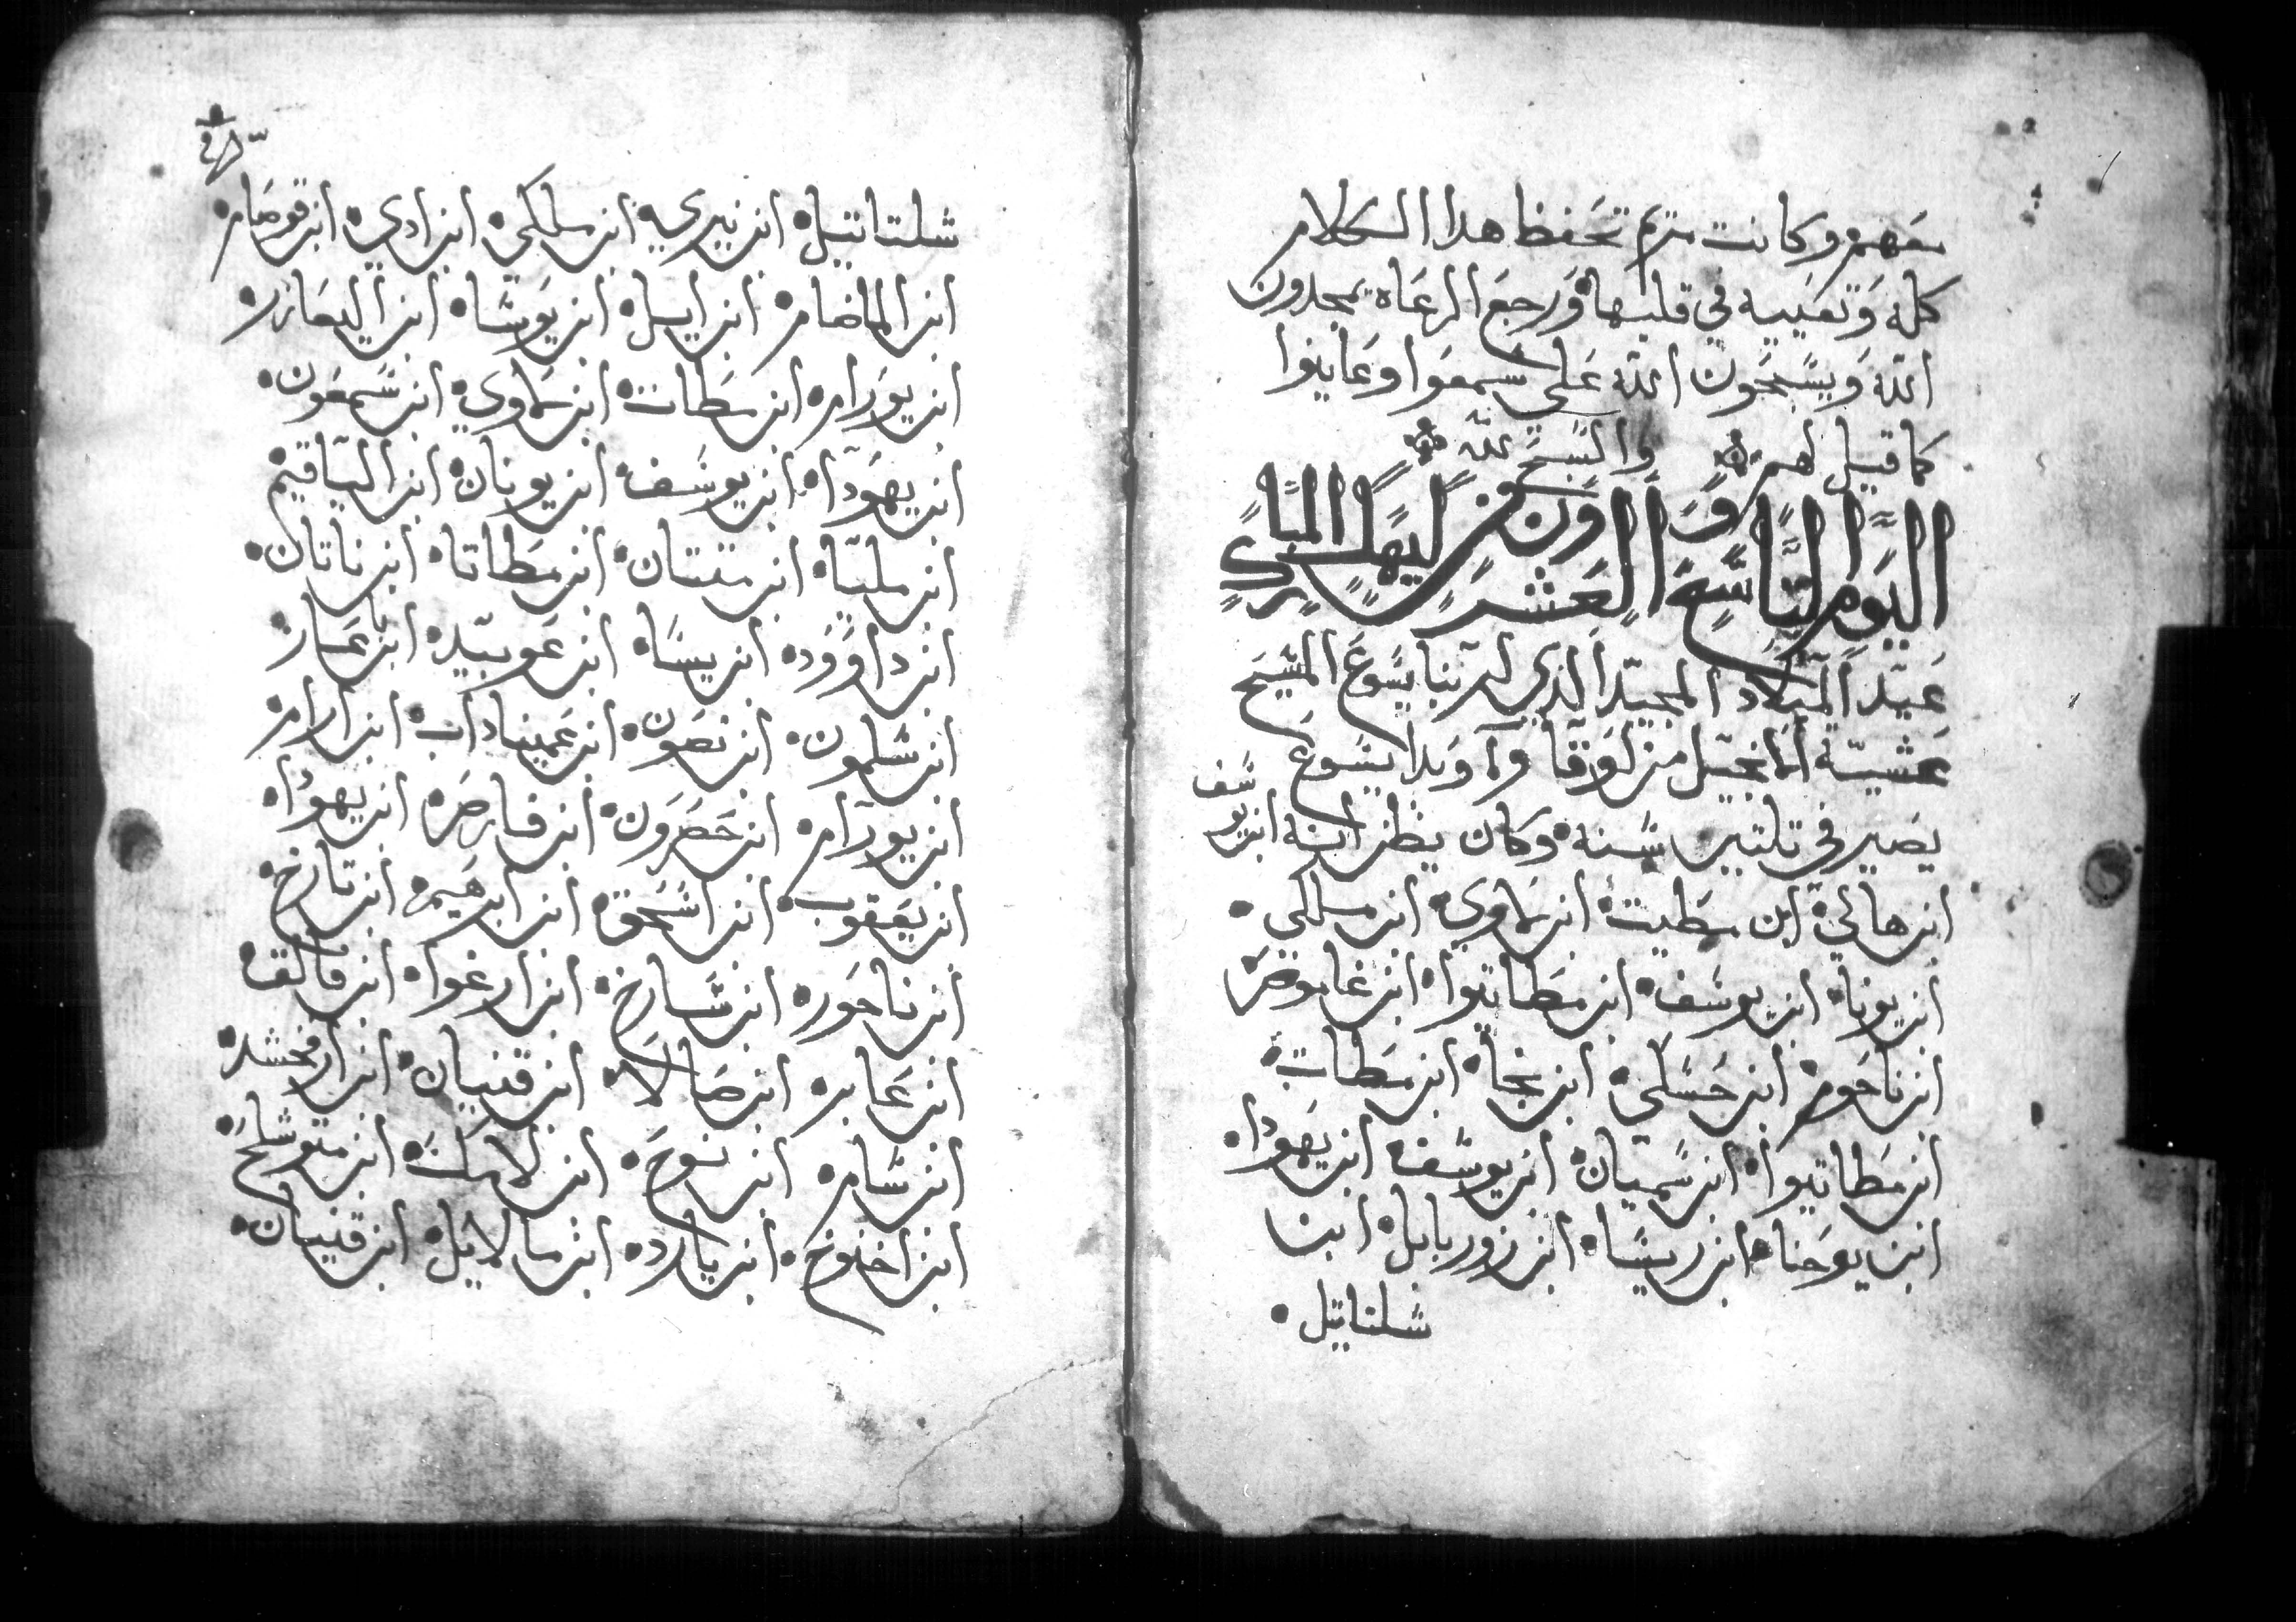 معهم وكانت مريم تحفظ هدا الكلام
كله وتعييه في قلبها ورجع الرعاه يمجدون
الله ويسبحون الله علي سمعوا وعاينوا
كما قيل لهم والسبح لله
اليوم التاسع والعشرون من كيهك المبارك
عيد الميلاد المجيد الذي لربنا يسوع المسيح
عشية الانجيل من لوقا وأوبدا يسوع
يصير في تلتين سنة وكان يظن انه ابن يوسف
ابن هالي ابن مطيت ابن ماوي ابن ملكي
ابن يونا ابن يوسف ابن مطاتيوا ابن غاموص
ابن ناحوم ابن حسلي ابن نجا ابن مطات
ابن مطاتيوا ابن سميان ابن يوسف ابن يهودا
ابن يوحنا ابن ريسا ابن زوربابل ابن
شلتاتيل
شلتاتيل ابن نيري ابن ملكي ابن ادي ابن قوصام
ابن الماضام ابن ايل ابن يوشا ابن اليعازر
ابن يورام ابن مطات ابن ماوي ابن شمعون
ابن يهودا ابن يوسف ابن يونان ابن الياقيم
ابن مليا ابن متتان ابن مطاتا ابن ناتان
ابن داوود ابن يسا ابن عوبيد ابن باعاز
ابن شلمون ابن نصون ابن عميناداب ابن ارام
ابن يورام ابن حصرون ابن فارص ابن يهودا
ابن يعقوب ابن اسحق ابن ابرهيم ابن تارخ
ابن ناحور ابن شارخ ابن ارغوا ابن فالق
ابن عابر ابن صالا ابن قنيان ابن ارفخشد
ابن شام ابن نوح ابن لامك ابن متوشلح
ابن اخنوخ ابن يارد ابن مالالايل ابن قنيان